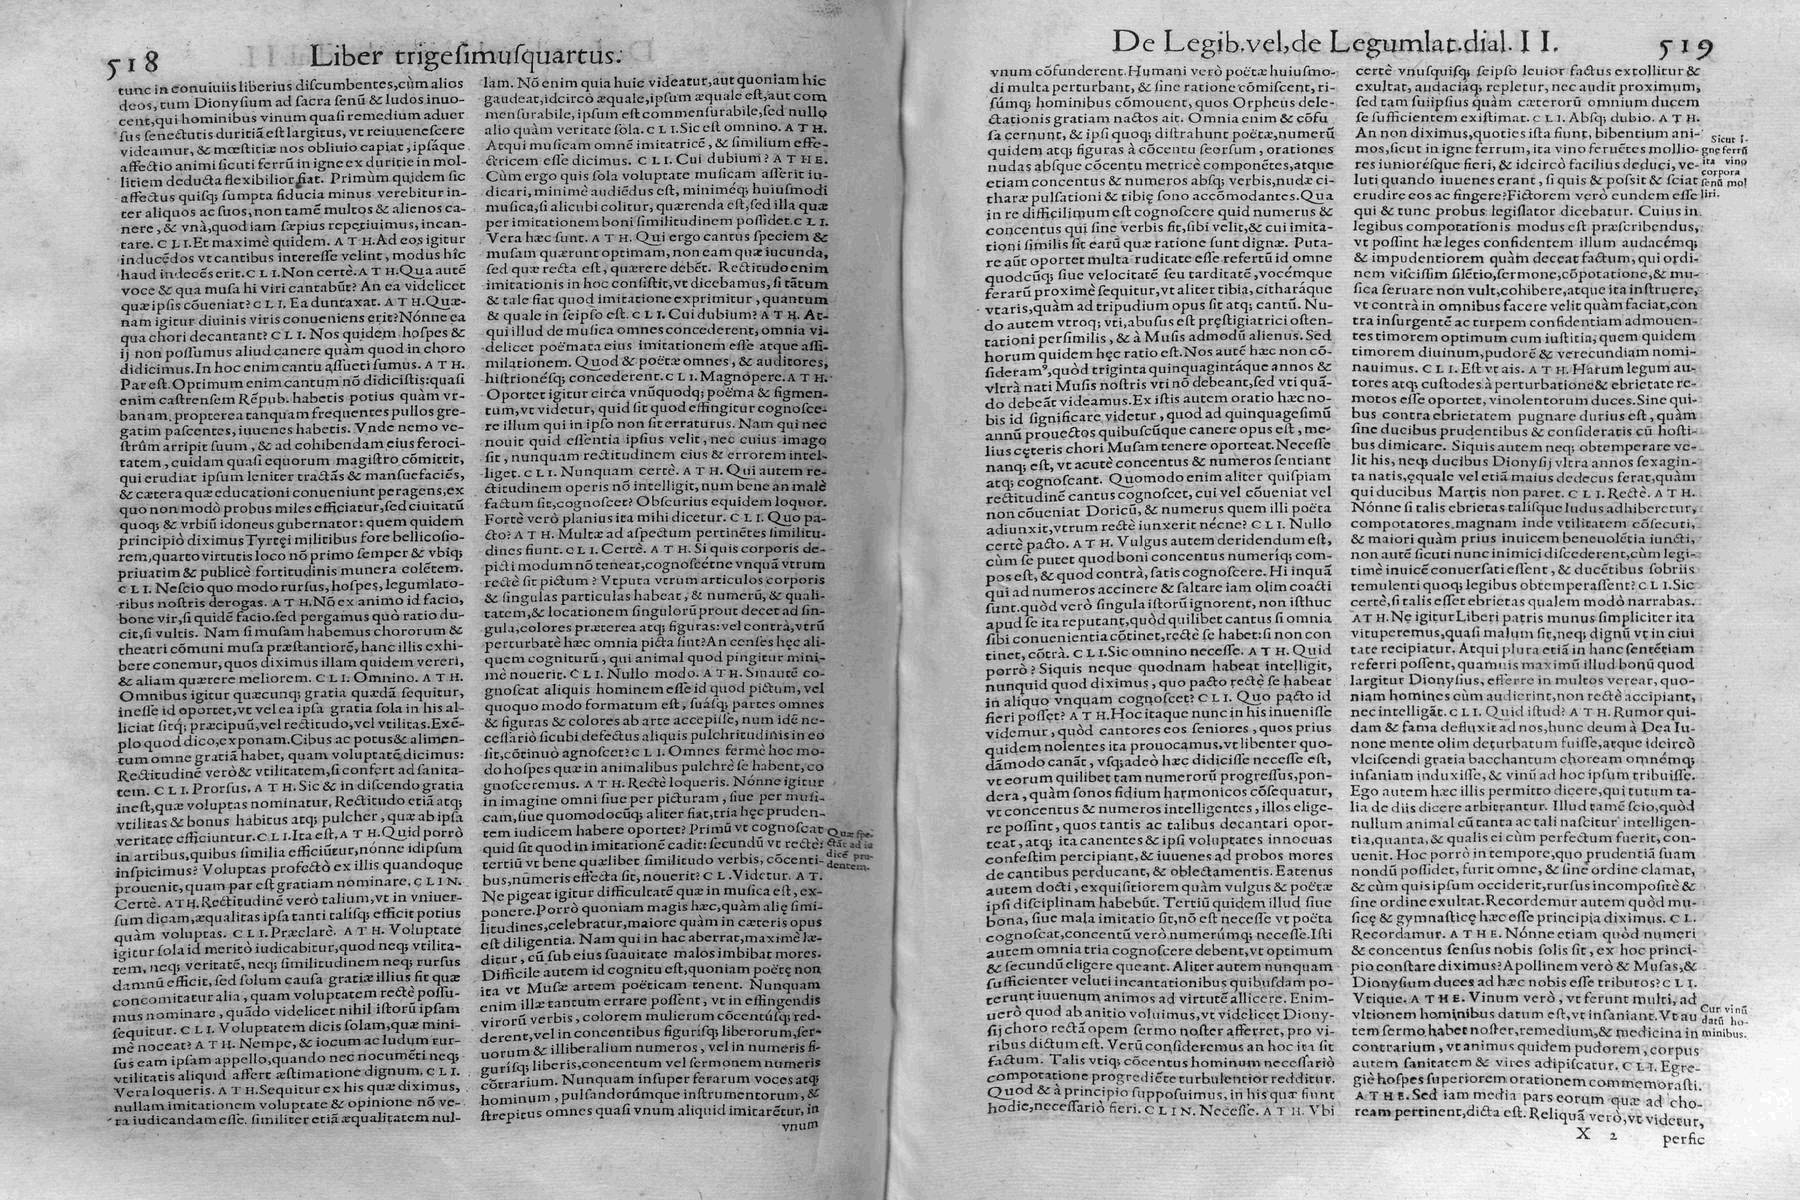 518 Liber trigeſimuſquartus.
tunc in conuiuiis liberius diſcumbentes, cùm alios
deos, tum Dionyſium ad ſacra ſenũ & ludos inuo-
cent, qui hominibus vinum quaſi remedium aduer
ſus ſenectutis duritiã eſt largitus, vt reiuueneſcere
videamur, & mœſtitiæ nos obliuio capiat, ipſáque
affectio animi ſicuti ferrũ in igne ex duritie in mol-
litiem deducta flexibilior fiat. Primùm quidem ſic
affectus quiſq; ſumpta fiducia minus verebitur in-
ter aliquos ac ſuos, non tamẽ multos & alienos ca-
nere, & vnà, quod iam ſæpius repetiuimus, incan-
tare. CLI. Et maximè quidem. ATH. Ad eos igitur
inducẽdos vt cantibus intereſſe velint, modus hîc
haud indecẽs erit. CLI. Non certè. ATH. Qua autẽ
voce & qua muſa hi viri cantabũt? An ea videlicet
quæ ipſis cõueniat? CLI. Ea duntaxat. ATH. Quæ-
nam igitur diuinis viris conueniens erit? Nónne ea
qua chori decantant? CLI. Nos quidem hoſpes &
ij non poſſumus aliud canere quàm quod in choro
didicimus. In hoc enim cantu aſſueti ſumus. ATH.
Par eſt. Optimum enim cantum nõ didiciſtis: quaſi
enim caſtrenſem Rẽpub. habetis potius quàm vr-
banam. propterea tanquam frequentes pullos gre-
gatim paſcentes, iuuenes habetis. Vnde nemo ve-
ſtrûm arripit ſuum, & ad cohibendam eius feroci-
tatem, cuidam quaſi equorum magiſtro cõmittit,
qui erudiat ipſum leniter tractãs & manſuefaciẽs,
& cætera quæ educationi conueniunt peragens, ex
quo non modò probus miles efficiatur, ſed ciuitatũ
quoq; & vrbiũ idoneus gubernator: quem quidem
principiò diximus Tyrtęi militibus fore bellicoſio-
rem, quarto virtutis loco nõ primo ſemper & vbiq;
priuatim & publicè fortitudinis munera colẽtem.
CLI. Neſcio quo modo rurſus, hoſpes, legumlato-
ribus noſtris derogas. ATH. Nõ ex animo id facio,
bone vir, ſi quidẽ facio. ſed pergamus quò ratio du-
cit, ſi vultis. Nam ſi muſam habemus chororum &
theatri cõmuni muſa præſtantiorẽ, hanc illis exhi-
bere conemur, quos diximus illam quidem vereri,
& aliam quærere meliorem. CLI. Omnino. ATH.
Omnibus igitur quæcunq; gratia quædã ſequitur,
ineſſe id oportet, vt vel ea ipſa gratia ſola in his al-
liciat ſitq́; præcipuũ, vel rectitudo, vel vtilitas. Exẽ-
plo quod dico, exponam. Cibus ac potus & alimen-
tum omne gratiã habet, quam voluptatẽ dicimus:
Rectitudinẽ verò & vtilitatem, ſi confert ad ſanita-
tem. CLI. Prorſus. ATH. Sic & in diſcendo gratia
ineſt, quæ voluptas nominatur. Rectitudo etiã atq;
vtilitas & bonus habitus atq; pulcher, quæ ab ipſa
veritate efficiuntur. CLI. Ita eſt. ATH. Quid porrò
in artibus, quibus ſimilia efficiũtur, nónne idipſum
inſpicimus? Voluptas profectò ex illis quandoque
prouenit, quam par eſt gratiam nominare. CLIN.
Certè. ATH. Rectitudinẽ verò talium, vt in vniuer-
ſum dicam, æqualitas ipſa tanti taliſq; efficit potius
quàm voluptas. CLI. Præclarè. ATH. Voluptate
igitur ſola id meritò iudicabitur, quod neq; vtilita-
tem, neq; veritatẽ, neq; ſimilitudinem neq; rurſus
damnũ efficit, ſed ſolum cauſa gratiæ illius fit quæ
concomitatur alia, quam voluptatem rectè poſſu-
mus nominare, quãdo videlicet nihil iſtorũ ipſam
ſequitur. CLI. Voluptatem dicis ſolam, quæ mini-
mè noceat? ATH. Nempe, & iocum ac ludum rur-
ſus eam ipſam appello, quando nec nocumẽti neq;
vtilitatis aliquid affert æſtimatione dignum. CLI.
Vera loqueris. ATH. Sequitur ex his quæ diximus,
nullam imitationem voluptate & opinione nõ ve-
ra iudicandam eſſe. ſimiliter etiã æqualitatem nul-
lam. Nõ enim quia huic videatur, aut quoniam hic
gaudeat, idcircò æquale, ipſum æquale eſt, aut com
menſurabile, ipſum eſt commenſurabile, ſed nullo
alio quàm veritate ſola. CLI. Sic eſt omnino. ATH.
Atqui muſicam omnẽ imitatricẽ, & ſimilium effe-
ctricem eſſe dicimus. CLI. Cui dubium? ATHE.
Cùm ergo quis ſola voluptate muſicam aſſerit iu-
dicari, minimè audiẽdus eſt, minimẽq; huiuſmodi
muſica, ſi alicubi colitur, quærenda eſt, ſed illa quæ
per imitationem boni ſimilitudinem poſſidet. CLI.
Vera hæc ſunt. ATH. Qui ergo cantus ſpeciem &
muſam quærunt optimam, non eam quæ iucunda,
ſed quæ recta eſt, quærere debẽt. Rectitudo enim
imitationis in hoc conſiſtit, vt dicebamus, ſi tãtum
& tale fiat quod imitatione exprimitur, quantum
& quale in ſeipſo eſt. CLI. Cui dubium? ATH. At-
qui illud de muſica omnes concederent, omnia vi-
delicet poëmata eius imitationem eſſe atque aſſi-
milationem. Quod & poëtæ omnes, & auditores,
hiſtrionéſq; concederent. CLI. Magnópere. ATH.
Oportet igitur circa vnũquodq; poëma & figmen-
tum, vt videtur, quid ſit quod effingitur cognoſce-
re illum qui in ipſo non ſit erraturus. Nam qui nec
nouit quid eſſentia ipſius velit, nec cuius imago
ſit, nunquam rectitudinem eius & errorem intel-
liget. CLI. Nunquam certè. ATH. Qui autem re-
ctitudinem operis nõ intelligit, num bene an malè
factum ſit, cognoſcet? Obſcurius equidem loquor.
Fortè verò planius ita mihi dicetur. CLI. Quo pa-
cto? ATH. Multæ ad aſpectum pertinẽtes ſimilitu-
dines fiunt. CLI. Certè. ATH. Si quis corporis de-
picti modum nõ teneat, cognoſcétne vnquã vtrum
rectè ſit pictum? Vtputa vtrum articulos corporis
& ſingulas particulas habeat, & numerũ, & quali-
tatem, & locationem ſingulorũ prout decet ad ſin-
gula, colores præterea atq; figuras: vel contrà, vtrũ
perturbatè hæc omnia picta ſint? An cenſes hęc ali-
quem cogniturũ, qui animal quod pingitur mini-
mè nouerit. CLI. Nullo modo. ATH. Sin autẽ co-
gnoſcat aliquis hominem eſſe id quod pictum, vel
quoquo modo formatum eſt, ſuáſq; partes omnes
& figuras & colores ab arte accepiſſe, num idẽ ne-
ceſſariò ſicubi defectus aliquis pulchritudinis in eo
ſit, cõtinuò agnoſcet? CLI. Omnes fermè hoc mo-
do hoſpes quæ in animalibus pulchrè ſe habent, co
gnoſceremus. ATH. Rectè loqueris. Nónne igitur
in imagine omni ſiue per picturam, ſiue per muſi-
cam, ſiue quomodocũq; aliter fiat, tria hęc pruden-
tem iudicem habere oportet? Primũ vt cognoſcat
quid ſit quod in imitationẽ cadit: ſecundũ vt rectè:
tertiũ vt bene quælibet ſimilitudo verbis, cõcenti-
bus, nũmeris effecta ſit, nouerit? CL. Videtur. AT.
Ne pigeat igitur difficultatẽ quæ in muſica eſt, ex-
ponere. Porrò quoniam magis hæc, quàm alię ſimi-
litudines, celebratur, maiore quàm in cæteris opus
eſt diligentia. Nam qui in hac aberrat, maximè læ-
ditur, cũ ſub eius ſuauitate malos imbibat mores.
Difficile autem id cognitu eſt, quoniam poëtę non
ita vt Muſæ artem poëticam tenent. Nunquam
enim illæ tantum errare poſſent, vt in effingendis
virorũ verbis, colorem mulierum cõcentúſq; red-
derent, vel in concentibus figuriſq; liberorum, ſer-
uorum & illiberalium numeros, vel in numeris fi-
guríſq; liberis, concentum vel ſermonem numeris
cõtrarium. Nunquam inſuper ferarum voces atq;
hominum, pulſandorúmque inſtrumentorum, &
ſtrepitus omnes quaſi vnum aliquid imitarẽtur, in
vnum
Quæ ſpe-
ctãt ad iu
dicẽ pru-
dentem.
De Legib. vel, de Legumlat. dial. II. 519
vnum cõfunderent. Humani verò poëtæ huiuſmo-
di multa perturbant, & ſine ratione cõmiſcent, ri-
ſúmq; hominibus cõmouent, quos Orpheus dele-
ctationis gratiam nactos ait. Omnia enim & cõfu
ſa cernunt, & ipſi quoq; diſtrahunt poëtæ, numerũ
quidem atq; figuras à cõcentu ſeorſum, orationes
nudas abſque cõcentu metricè componẽtes, atque
etiam concentus & numeros abſq; verbis, nudæ ci-
tharæ pulſationi & tibię ſono accõmodantes. Qua
in re difficilimum eſt cognoſcere quid numerus &
concentus qui ſine verbis fit, ſibi velit, & cui imita-
tioni ſimilis ſit earũ quæ ratione ſunt dignæ. Puta-
re aũt oportet multa ruditate eſſe refertũ id omne
quodcũq; ſiue velocitatẽ ſeu tarditatẽ, vocémque
ferarũ proximè ſequitur, vt aliter tibia, citharáque
vtaris, quàm ad tripudium opus ſit atq; cantũ. Nu-
do autem vtroq; vti, abuſus eſt pręſtigiatrici oſten-
tationi perſimilis, & à Muſis admodũ alienus. Sed
horum quidem hęc ratio eſt. Nos autẽ hæc non cõ-
ſideramꝰ, quòd triginta quinquagintáque annos &
vltrà nati Muſis noſtris vti nõ debeant, ſed vti quã-
do debeãt videamus. Ex iſtis autem oratio hæc no-
bis id ſignificare videtur, quod ad quinquageſimũ
annũ prouectos quibuſcũque canere opus eſt, me-
lius cęteris chori Muſam tenere oporteat. Neceſſe
nanq; eſt, vt acutè concentus & numeros ſentiant
atq; cognoſcant. Quomodo enim aliter quiſpiam
rectitudinẽ cantus cognoſcet, cui vel cõueniat vel
non cõueniat Doricũ, & numerus quem illi poëta
adiunxit, vtrum rectè iunxerit nécne? CLI. Nullo
certè pacto. ATH. Vulgus autem deridendum eſt,
cùm ſe putet quod boni concentus numeriq; com-
pos eſt, & quod contrà, ſatis cognoſcere. Hi inquã
qui ad numeros accinere & ſaltare iam olim coacti
ſunt. quòd verò ſingula iſtorũ ignorent, non iſthuc
apud ſe ita reputant, quòd quilibet cantus ſi omnia
ſibi conuenientia cõtinet, rectè ſe habet: ſi non con
tinet, cõtrà. CLI. Sic omnino neceſſe. ATH. Quid
porrò? Siquis neque quodnam habeat intelligit,
nunquid quod diximus, quo pacto rectè ſe habeat
in aliquo vnquam cognoſcet? CLI. Quo pacto id
fieri poſſet? ATH. Hoc itaque nunc in his inueniſſe
videmur, quòd cantores eos ſeniores, quos prius
quidem nolentes ita prouocamus, vt libenter quo-
dãmodo canãt, vſq; adeò hæc didiciſſe neceſſe eſt,
vt eorum quilibet tam numerorũ progreſſus, pon-
dera, quàm ſonos fidium harmonicos cõſequatur,
vt concentus & numeros intelligentes, illos elige-
re poſſint, quos tantis ac talibus decantari opor-
teat, atq; ita canentes & ipſi voluptates innocuas
confeſtim percipiant, & iuuenes ad probos mores
de cantibus perducant, & oblectamentis. Eatenus
autem docti, exquiſitiorem quàm vulgus & poëtæ
ipſi diſciplinam habebũt. Tertiũ quidem illud ſiue
bona, ſiue mala imitatio ſit, nõ eſt neceſſe vt poëta
cognoſcat, concentũ verò numerúmq; neceſſe. Iſti
autem omnia tria cognoſcere debent, vt optimum
& ſecundũ eligere queant. Aliter autem nunquam
ſufficienter veluti incantationibus quibuſdam po-
terunt iuuenum animos ad virtutẽ allicere. Enim-
uerò quod ab anitio voluimus, vt videlicet Diony-
ſij choro rectã opem ſermo noſter afferret, pro vi-
ribus dictum eſt. Verũ conſideremus an hoc ita ſit
factum. Talis vtiq; cõcentus hominum neceſſariò
compotatione progrediẽte turbulentior redditur.
Quod & à principio ſuppoſuimus, in his quæ fiunt
hodie, neceſſariò fieri. CLIN. Neceſſe. ATH. Vbi
certè vnuſquiſq; ſeipſo leuior factus extollitur &
exultat, audaciáq; repletur, nec audit proximum,
ſed tam ſui ipſius quàm cæterorũ omnium ducem
ſe ſufficientem exiſtimat. CLI. Abſq; dubio. ATH.
An non diximus, quoties iſta fiunt, bibentium ani-
mos, ſicut in igne ferrum, ita vino feruẽtes mollio-
res iunioréſque fieri, & idcircò facilius deduci, ve-
luti quando iuuenes erant, ſi quis & poſſit & ſciat
erudire eos ac fingere? Fictorem verò eundem eſſe
qui & tunc probus legiſlator dicebatur. Cuius in
legibus compotationis modus eſt præſcribendus,
vt poſſint hæ leges confidentem illum audacémq;
& impudentiorem quàm deceat factum, qui ordi-
nem viciſſim ſilẽtio, ſermone, cõpotatione, & mu-
ſica ſeruare non vult, cohibere, atque ita inſtruere,
vt contrà in omnibus facere velit quàm faciat, con
tra inſurgentẽ ac turpem confidentiam admouen-
tes timorem optimum cum iuſtitia, quem quidem
timorem diuinum, pudorẽ & verecundiam nomi-
nauimus. CLI. Eſt vt ais. ATH. Harum legum au-
tores atq; cuſtodes à perturbatione & ebrietate re-
motos eſſe oportet, vinolentorum duces. Sine qui-
bus contra ebrietatem pugnare durius eſt, quàm
ſine ducibus prudentibus & conſideratis cũ hoſti-
bus dimicare. Siquis autem neq; obtemperare ve-
lit his, neq; ducibus Dionyſij vltra annos ſexagin-
ta natis, ęquale vel etiã maius dedecus ferat, quàm
qui ducibus Martis non paret. CLI. Rectè. ATH.
Nónne ſi talis ebrietas taliſque ludus adhiberetur,
compotatores magnam inde vtilitatem cõſecuti,
& maiori quàm prius inuicem beneuolẽtia iuncti,
non autẽ ſicuti nunc inimici diſcederent, cùm legi-
timè inuicẽ conuerſati eſſent, & ducẽtibus ſobriis
temulenti quoq; legibus obtemperaſſent? CLI. Sic
certè, ſi talis eſſet ebrietas qualem modò narrabas.
ATH. Ne igitur Liberi patris munus ſimpliciter ita
vituperemus, quaſi malum ſit, neq; dignũ vt in ciui
tate recipiatur. Atqui plura etiã in hanc ſentẽtiam
referri poſſent, quamuis maximũ illud bonũ quod
largitur Dionyſius, efferre in multos verear, quo-
niam homines cùm audierint, non rectè accipiant,
nec intelligãt. CLI. Quid iſtud? ATH. Rumor qui-
dam & fama defluxit ad nos, hunc deum à Dea Iu-
none mente olim deturbatum fuiſſe, atque idcircò
vlciſcendi gratia bacchantum choream omnémq;
inſaniam induxiſſe, & vinũ ad hoc ipſum tribuiſſe.
Ego autem hæc illis permitto dicere, qui tutum ta-
lia de diis dicere arbitrantur. Illud tamẽ ſcio, quòd
nullum animal cũ tanta ac tali naſcitur intelligen-
tia, quanta, & qualis ei cùm perfectum fuerit, con-
uenit. Hoc porrò in tempore, quo prudentiã ſuam
nondũ poſſidet, furit omne, & ſine ordine clamat,
& cùm quis ipſum occiderit, rurſus incompoſitè &
ſine ordine exultat. Recordemur autem quòd mu-
ſicę & gymnaſticę hæc eſſe principia diximus. CL.
Recordamur. ATHE. Nónne etiam quòd numeri
& concentus ſenſus nobis ſolis ſit, ex hoc princi-
pio conſtare diximus? Apollinem verò & Muſas, &
Dionyſium duces ad hæc nobis eſſe tributos? CLI.
Vtique. ATHE. Vinum verò, vt ferunt multi, ad
vltionem hominibus datum eſt, vt inſaniant. Vt au
tem ſermo habet noſter, remedium, & medicina in
contrarium, vt animus quidem pudorem, corpus
autem ſanitatem & vires adipiſcatur. CLI. Egre-
giè hoſpes ſuperiorem orationem commemoraſti.
ATHE. Sed iam media pars eorum quæ ad cho-
ream pertinent, dicta eſt. Reliquã verò, vt videtur,
X 2 perfic
Sicut ĩ-
gne ferrũ
ita vino
corpora
ſenũ mol
liri.
Cur vinũ
datũ ho-
minibus.